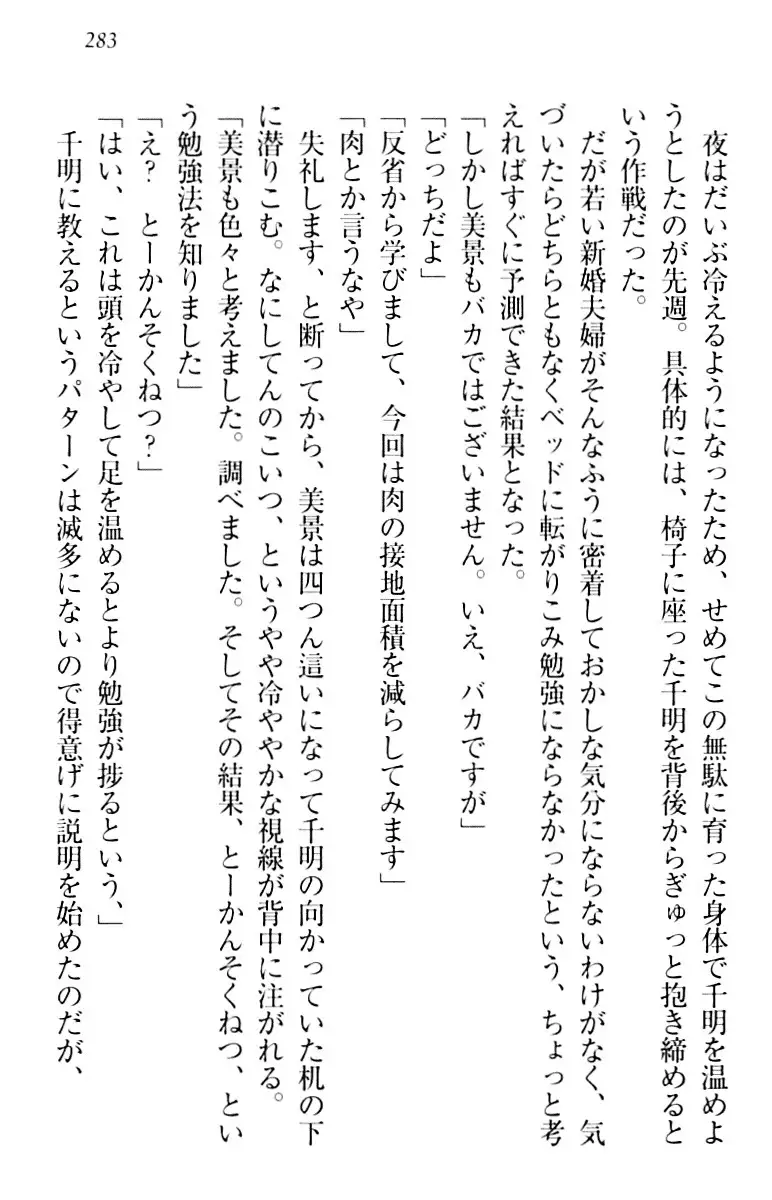 283
　夜はだいぶ冷えるようになったため、せめてこの無駄に育った身体で千明を温めよ
うとしたのが先週。具体的には、椅子に座った千明を背後からぎゅっと抱き締めると
いう作戦だった。
　だが若い新婚夫婦がそんなふうに密着しておかしな気分にならないわけがなく、気
づいたらどちらともなくベッドに転がりこみ勉強にならなかったという、ちょっと考
えればすぐに予測できた結果となった。
「しかし美景もバカではございません。いえ、バカですが」
「どっちだよ」
「反省から学びまして、今回は肉の接地面積を減らしてみます」
「肉とか言うなや」
　失礼します、と断ってから、美景は四つん這いになって千明の向かっていた机の下
に潜りこむ。なにしてんのこいつ、というやや冷ややかな視線が背中に注がれる。
「美景も色々と考えました。調べました。そしてその結果、とーかんそくねつ、とい
う勉強法を知りました」
「え？　とーかんそくねつ？」
「はい、これは頭を冷やして足を温めるとより勉強が捗るという、」
　千明に教えるというパターンは滅多にないので得意げに説明を始めたのだが、